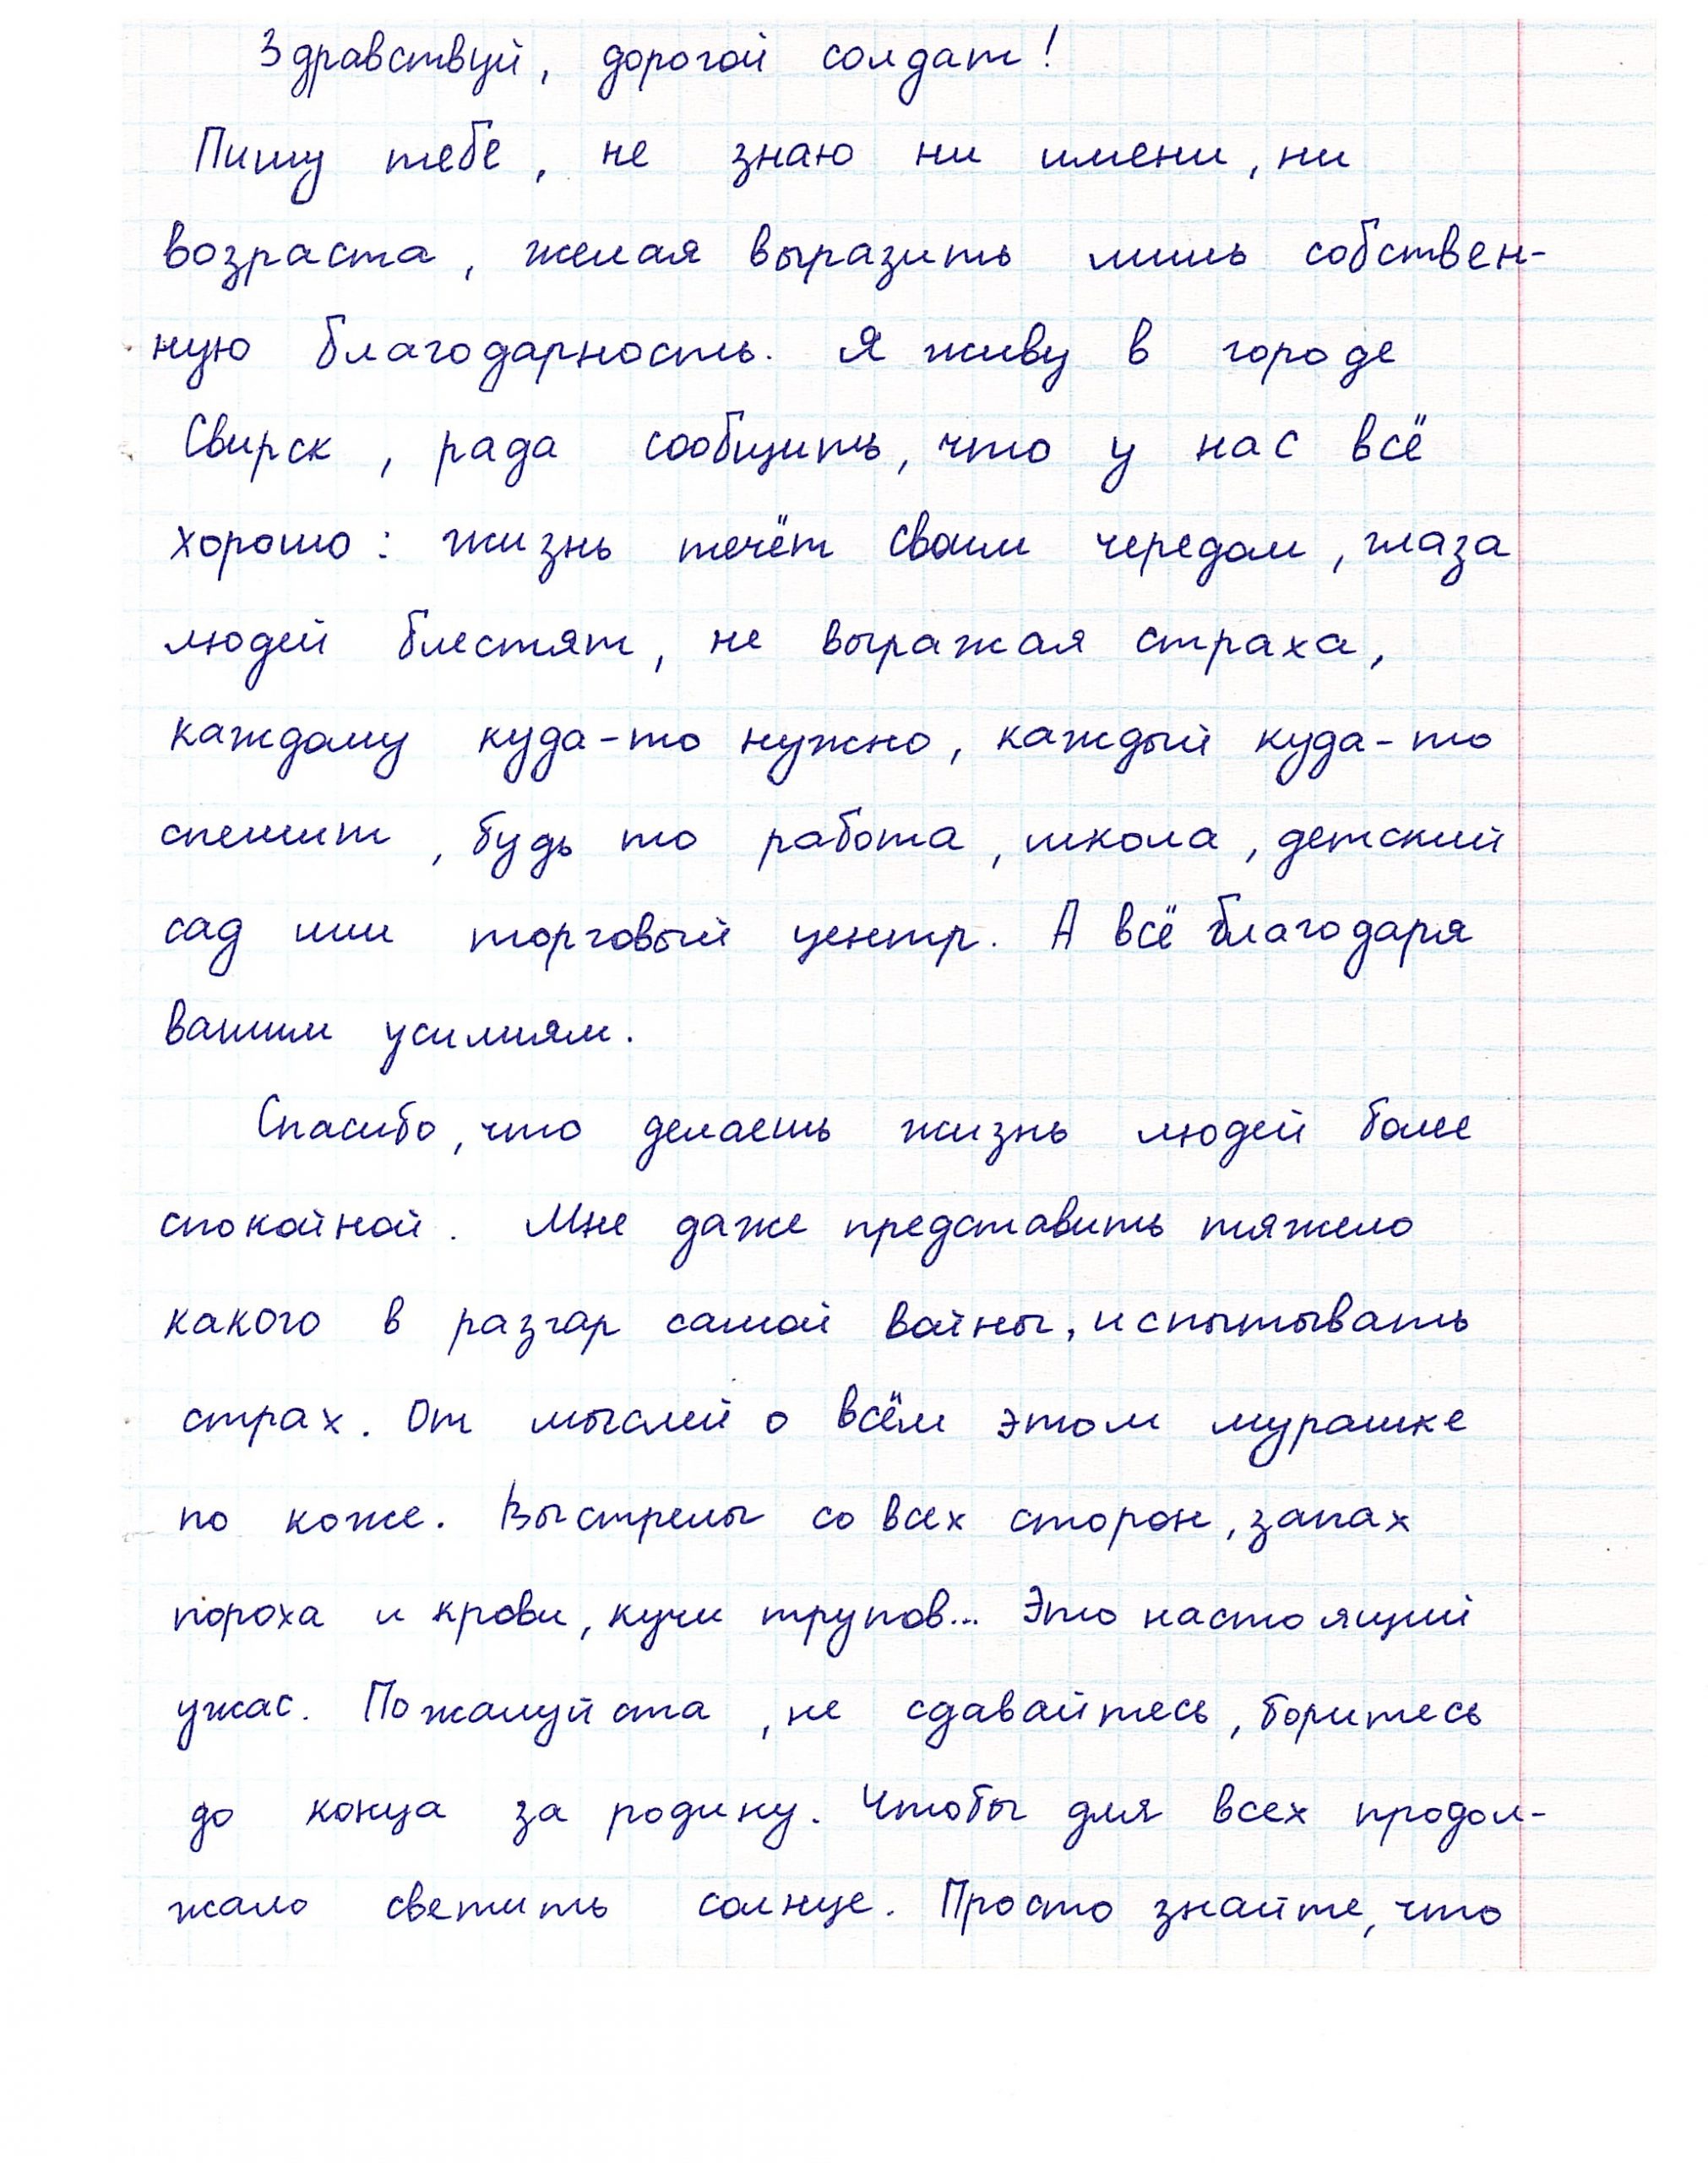 Здравствуй, дорогой солдат!
Пишу тебе, не знаю ни имени, ни
возраста, желая выразить лишь собствен-
ную благодарность. Я живу в городе
Свирск, рада сообщить, что у нас всё
хорошо: жизнь течёт своим чередом, глаза
людей блестят, не выражая страха,
каждому куда-то нужно, каждый куда-то
спешит, будь то работа, школа, детский
сад или торговый центр. А всё благодаря
вашим усилиям.
Спасибо, что делаешь жизнь людей более
спокойной. Мне даже представить тяжело
какого в разгар самой войны, испытывать
страх. От мыслей о всём этом мурашке
по коже. Выстрелы со всех сторон, запах
пороха и крови, кучи трупов... Это настоящий
ужас. Пожалуйста, не сдавайтесь, боритесь
до конца за родину. Чтобы для всех продол-
жало светить солнце. Просто знайте, что